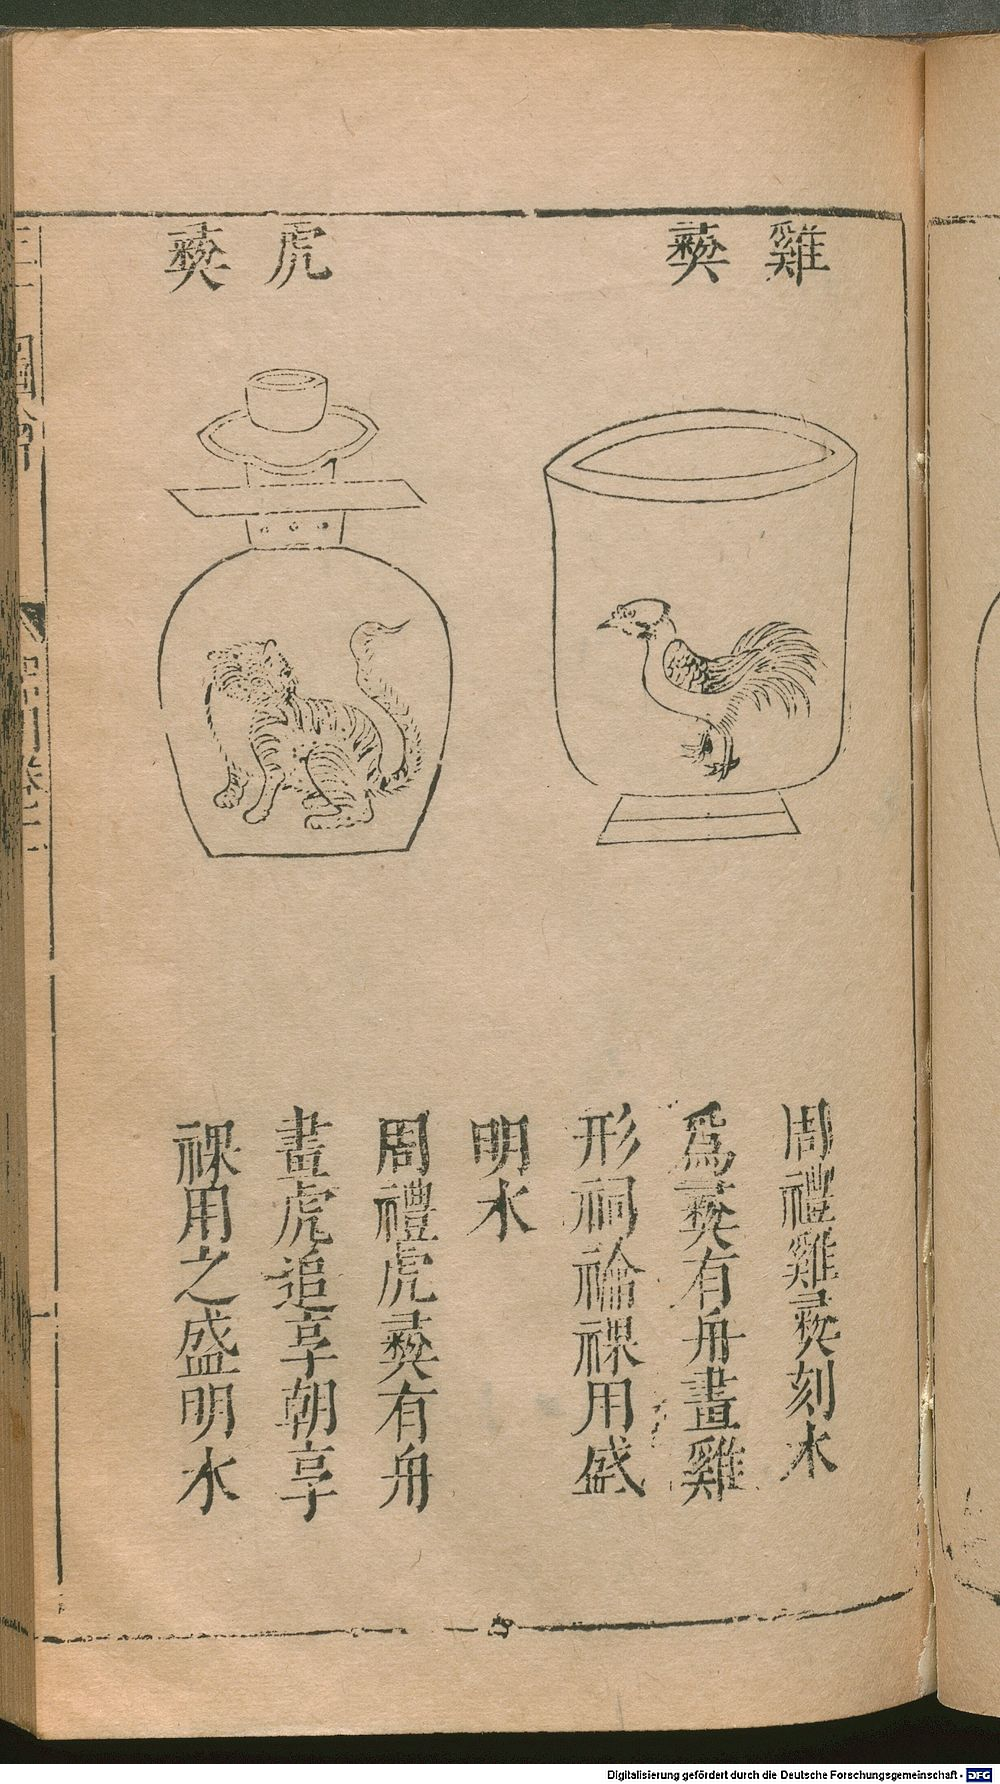 雞彝
周禮雞彝刻木
爲彝有舟畫雞
形祠禴祼用盛
明水
虎彝
周禮虎彝有舟
畫虎追享朝享
祼用之盛明水
Digitalisierung gefördert durch die Deutsche Forschungsgemeinschaft - DFG